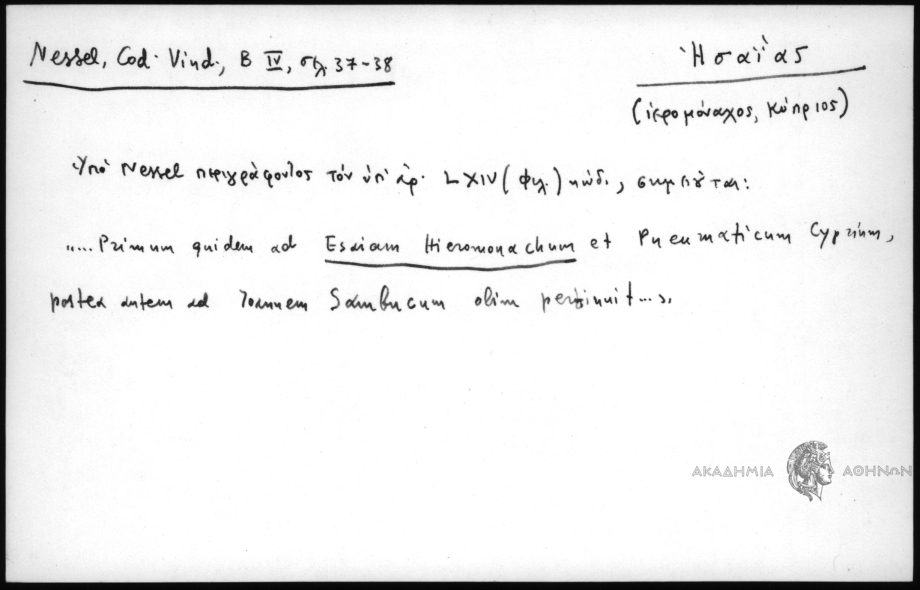 Nessel, Cod. Vind., B IV, σελ. 37-38
Ἡσαΐας
(ἱερομόναχος, Κύπριος)
Ὑπὸ Nessel περιγράφοντος τὸν ὑπ' ἀρ. LXIV (φιλ.) κώδ., σημειοῦται:
„.... Primum quidem ad Esaiam Hieromonachum et Pneumaticum Cyprium,
postea autem ad Ioannem Sambucum olim pertinuit...".
ΑΚΑΔΗΜΙΑ ΑΘΗΝΩΝ